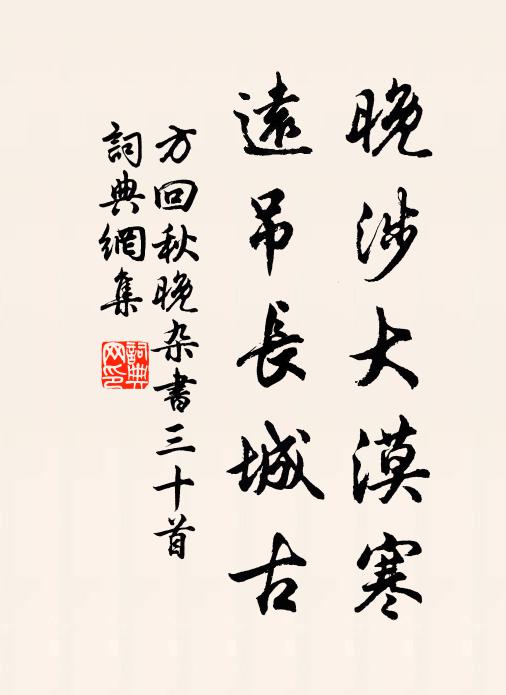 晚涉大漠寒
遠吊長城古
方回秋晚杂書三十首
詞典網集
詞典网印